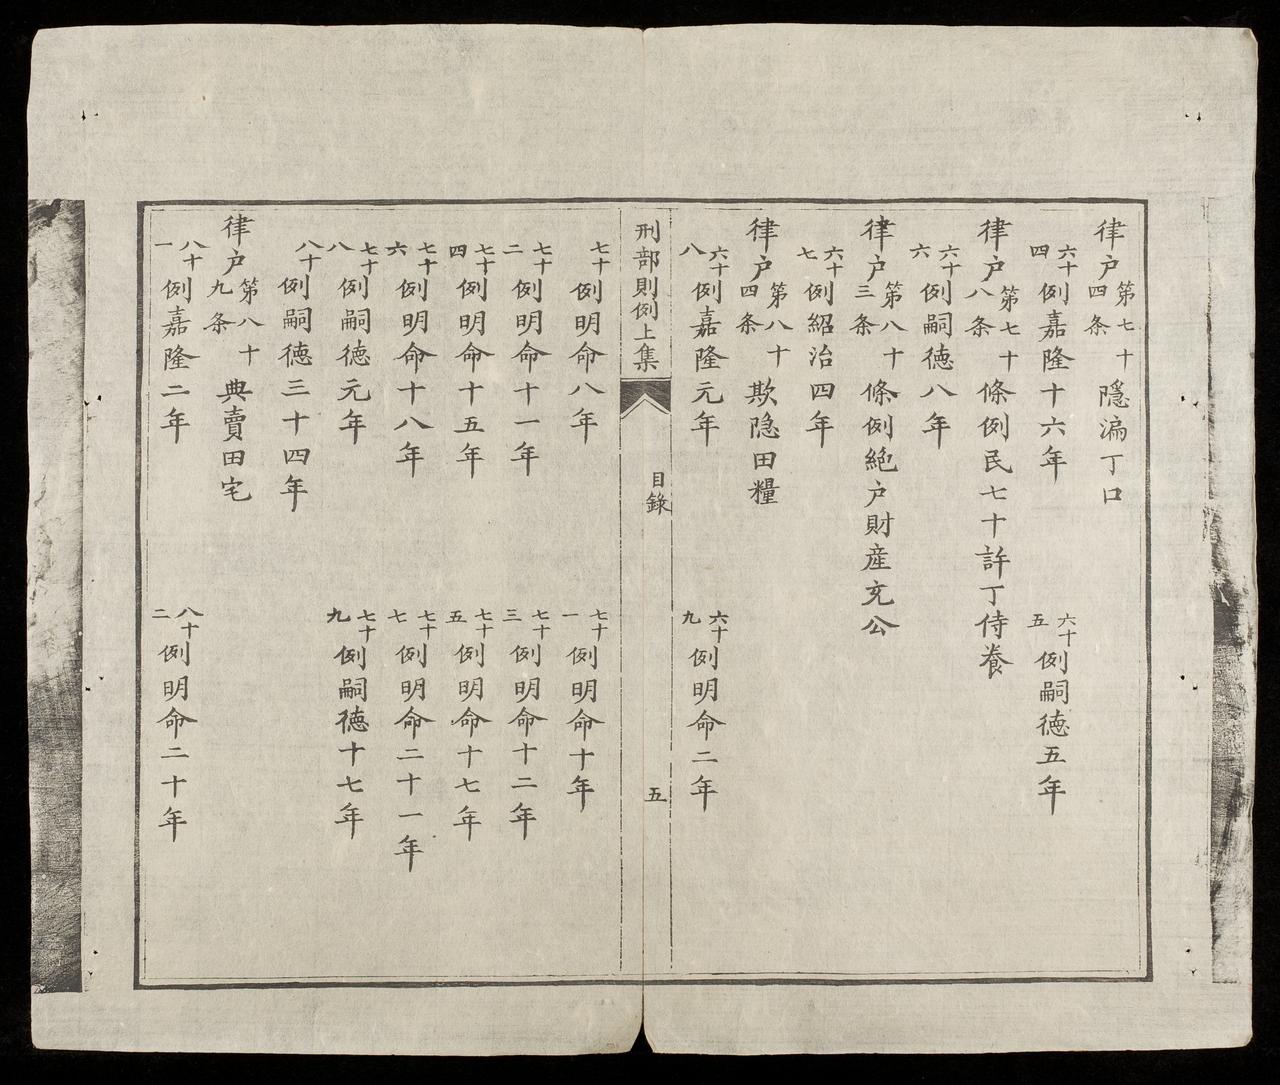 律户第七十四条隱漏丁口
六十四例嘉隆十六年 六十五例嗣德五年
律户第七十八条條例民七十許丁侍養
六十六例嗣德八年
律户第八十三条條例絶户財産充公
六十七例紹治四年
律户第八十四条欺隐田糧
六十八例嘉隆元年 六十九例明命二年
刑部則例上集 目錄 五
七十例明命八年 七十一例明命十年
七十二例明命十一年 七十三例明命十二年
七十四例明命十五年 七十五例明命十七年
七十六例明命十八年 七十七例明命二十一年
七十八例嗣德元年 七十九例嗣德十七年
八十例嗣德三十四年
律户第八十九条典賣田宅
八十一例嘉隆二年 八十二例明命二十年